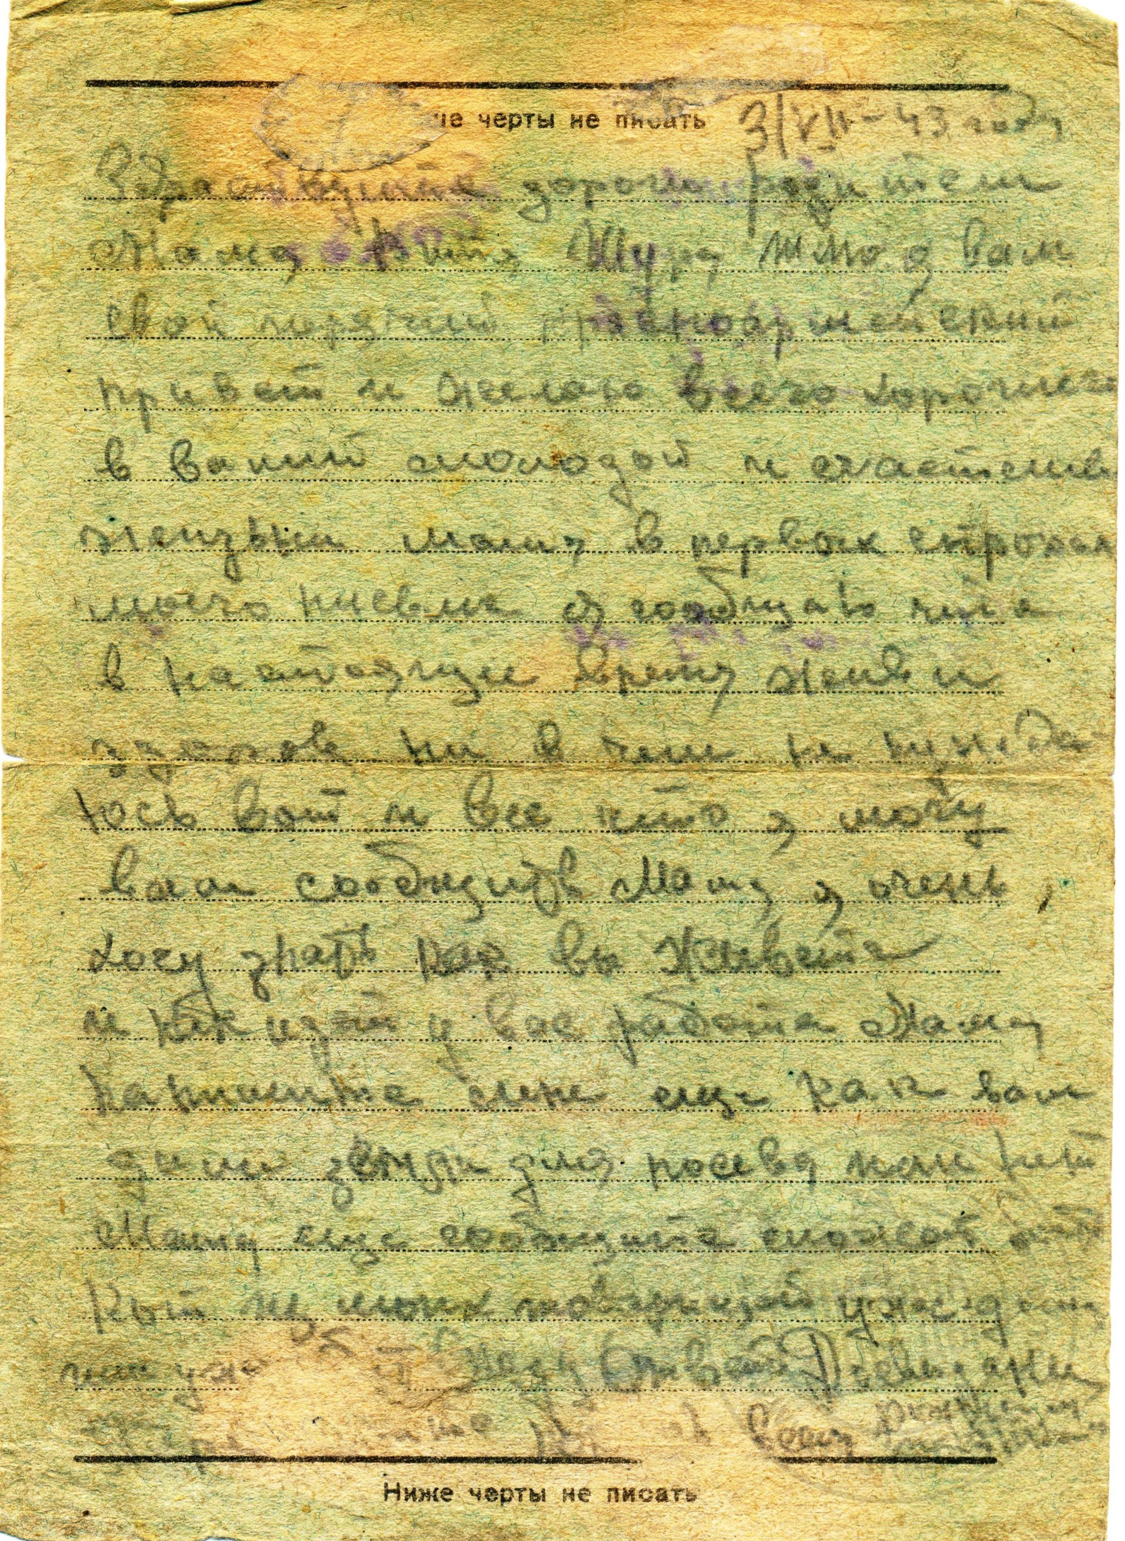 ше черты не писать 3/VII-43 году
Здраствуйте дорогии родители
Мама Витя Шура шлю я вам
свой горячий красноармейский
привет и желаю всего хорошего
в вашей молодой и счастлив
жизьни Мама в первых строках
моего письма я сообщаю что
в настоящее время жив и
здоров ни в чем не нужда
юсь вот и все что я могу
вам сообщить Мама я очень
хочу знать как вы живете
и как идет у вас работа Мама
напишите мне еще как вам
дали земли для посева или нет
Мама еще сообщите может быть
Кто из моих товарищей уже дома
или Жду Ответа Досвидания
вам
Ниже черты не писать